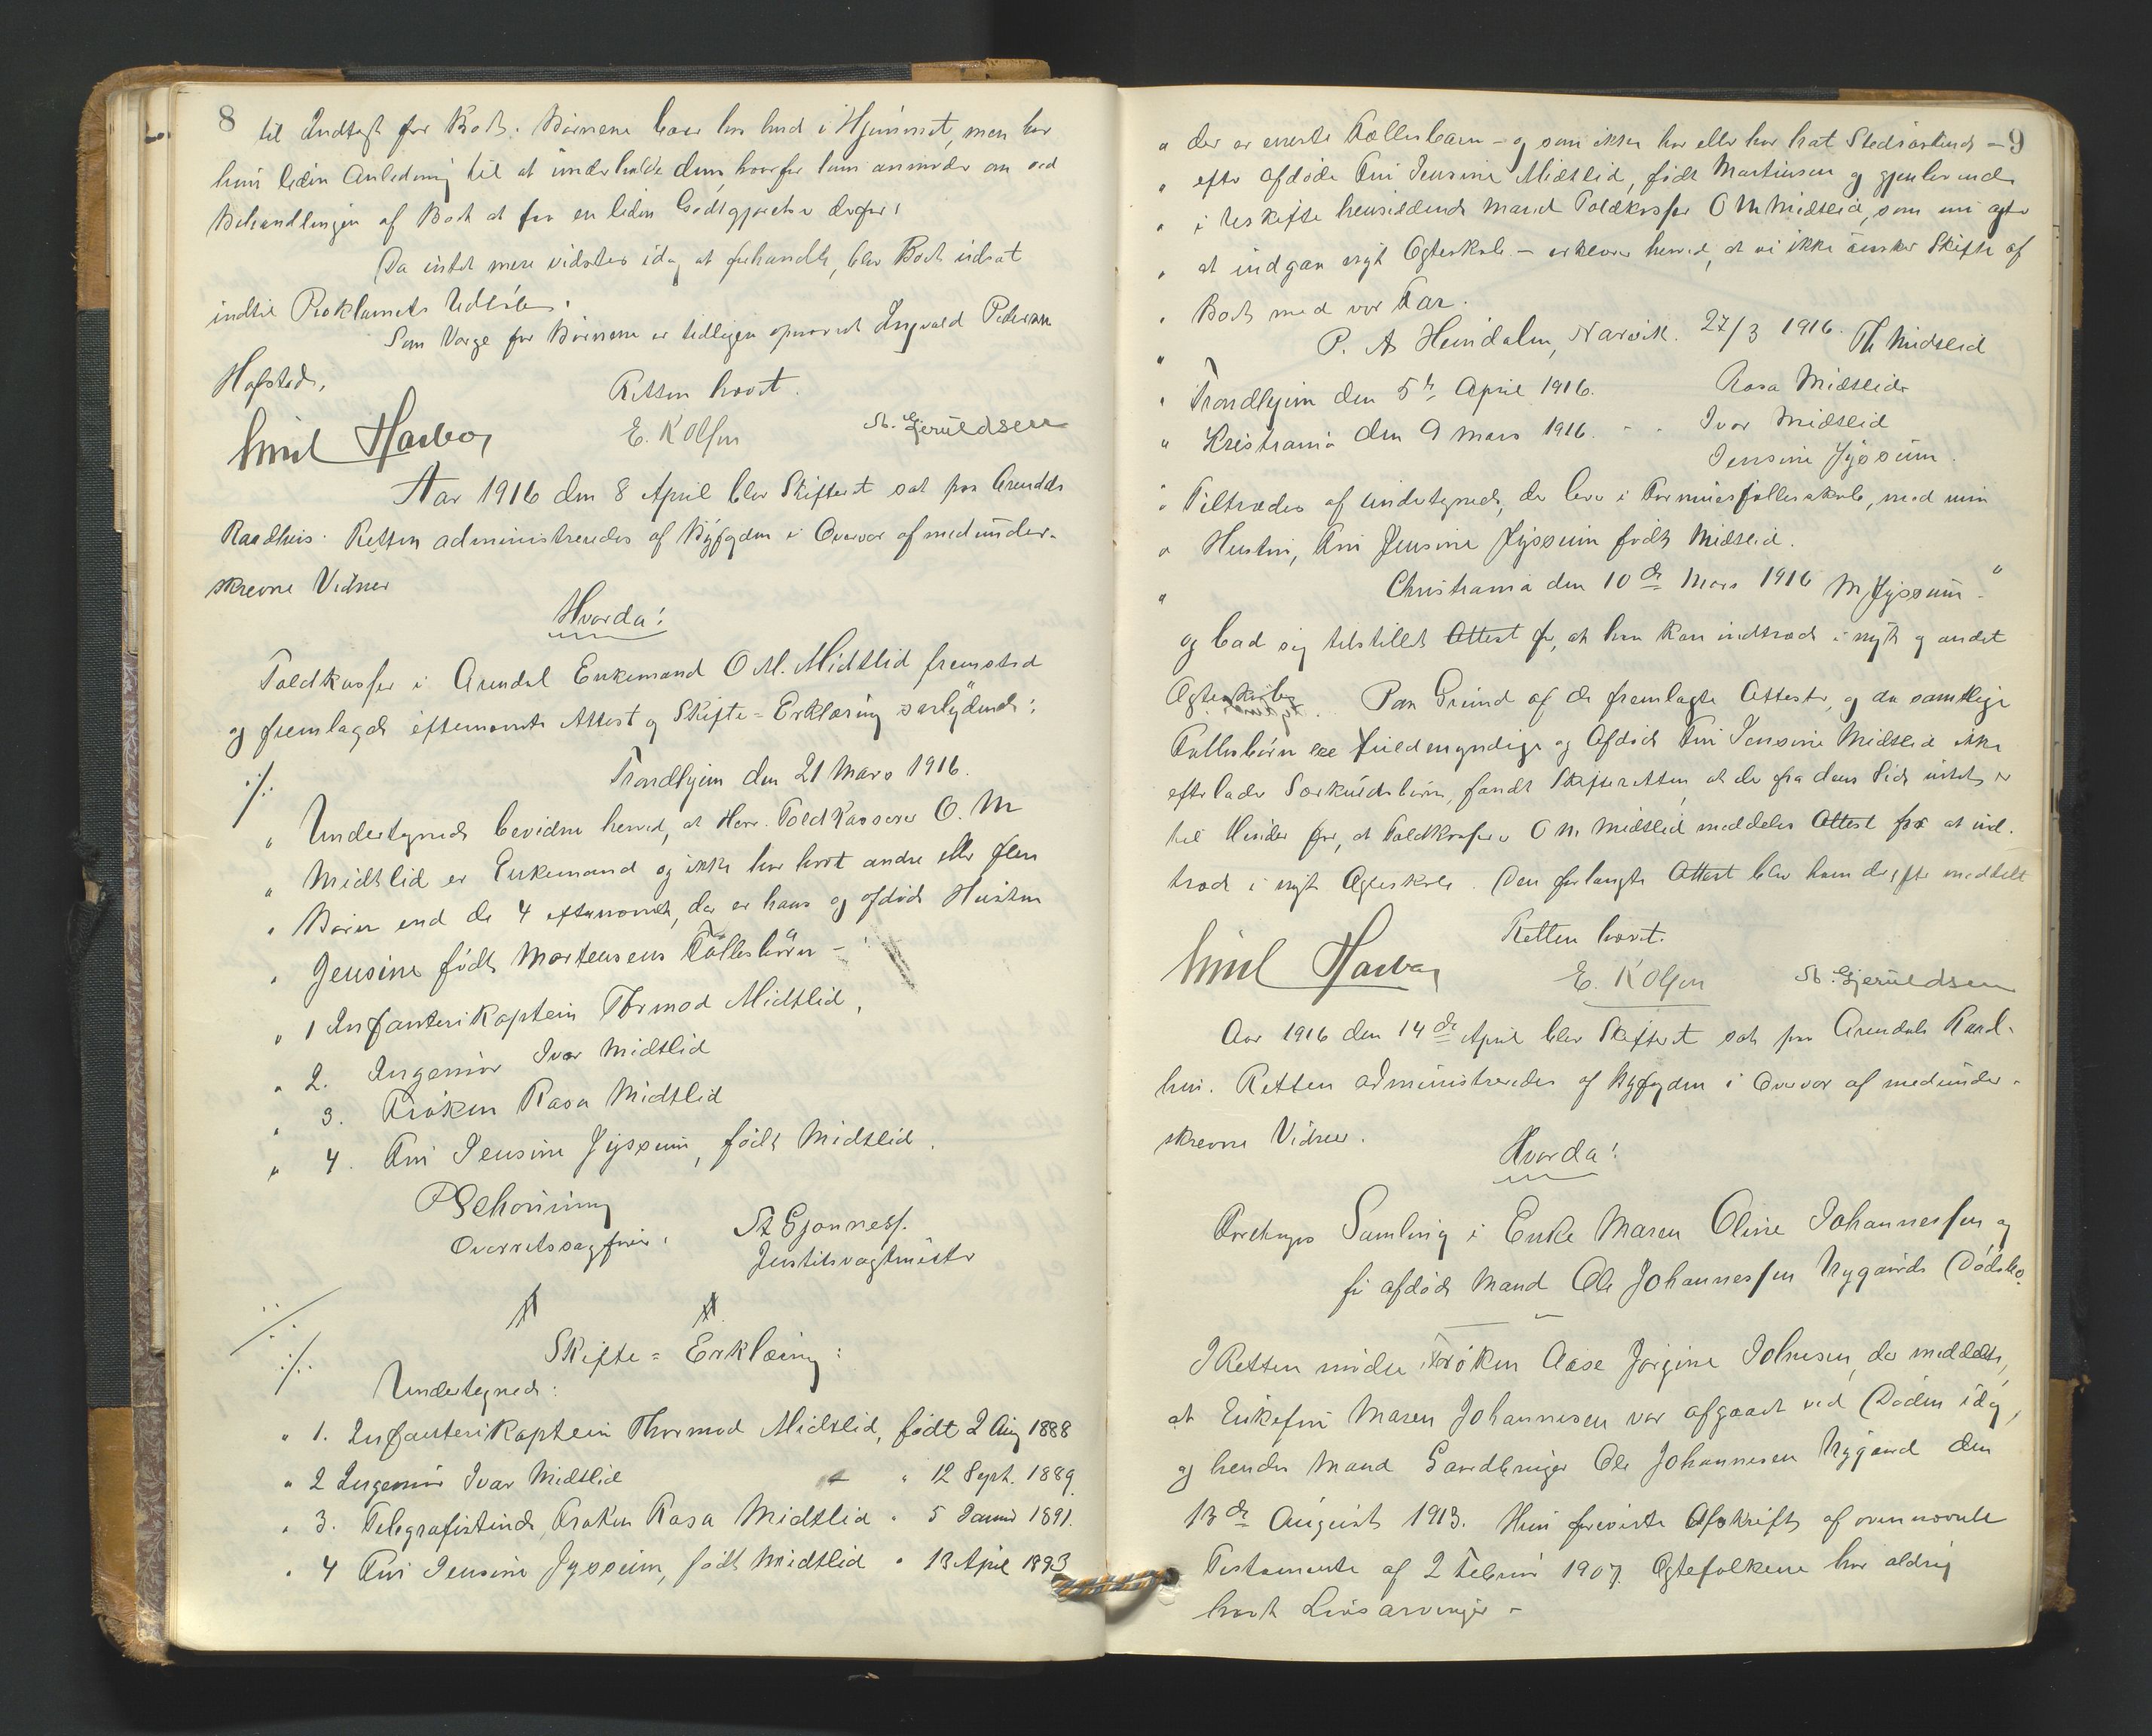 8
til Indtægt for Boet. Börnene har hun hud i Hjemmet, men har
hun liden Anledning til at underholde dem, hvorfor hun anmoder om ved
Behandlingen af Boet at faa en liden Godtgjørelse derfor.
Da intet mere vidstes idag at forhandle, blev Boet udsat
indtil Proklamets Udløb.
Som Værge for Börnene er tidligere opnævnt Ingvald Pedersen
Hofstad.
Retten hævet.
Emil Harboe E. K Olsen St. Gjeruldsen
Aar 1916 den 8 April blev Skifteret sat paa Arendals
Raadhus. Retten administreredes af Byfogden i Overvær af medunder-
skrevne Vidner
Hvorda!
Toldkasser i Arendal Enkemand O M. Midtlid fremstod
og fremlagde eftenævnte Attest og Skifte-Erklæring saalydende:
./. Trondhjem den 21 Mars 1916.
" Undertegnede bevidne herved, at Herr. Toldkasserer O. M
" Midtlid er Enkemand og ikke har havt andre eller flere
" Børn end de 4 eftenævnte, der er hans og afdøde Hustru
" Jensine født Mortensens Fællesbörn -:
" 1 Infanterikaptein Thormod Midtlid,
" 2. Ingeniør Ivar Midtlid
" 3. Frøken Rasa Midtlid
" 4. Ani Jensine Jyssum, født Midtlid.
P Schonning St Gjonness.
Overretssagfører. Justitsvagtmester
./. Skifte-Erklæring:
Undertegnede:
" 1. Infanterikaptein Thormod Midtlid, født 2 Aug 1888
" 2 Ingeniør Ivar Midtlid " 12 Sept. 1889.
" 3. Telegrafistinde, Frøken Rasa Midtlid " 5 Januar 1891.
" 4 Ani Jensine Jyssum, født Midtlid " 13 April 1893
9
" der er eneste Fællesbarn - og som ikke har eller har hat Stedsøskende -
" efter afdøde Ani Jensine Midtlid, født Martinsen og gjenlevende
" i Uskifte hensiddende Mand Toldkasser O M Midtlid, som nu agter
" at indgaa nyt Ægteskab - erklærer herved, at vi ikke ønsker Skifte af
" Boet med vor Far.
" P. A Heindalen, Narvik. 27/3 1916. Th Midtlid
" Trondhjem den 5te April 1916. Rasa Midtlid
" Kristiania den 9 Mars 1916. - - Ivar Midtlid
Jensine Jyssum.
" Tiltrædes af undertegnede, der lever i Formuesfællesskab, med min
" Hustru, Ani Jensine Jyssum født Midtlid.
" Christiania den 10de Mars 1916 M Jyssum -"
og bad sig tilstillet Attest for, at han kan indtræde i nyt og andet
Ægteskab. Paa Grund af de fremlagte Attester, og da samtlige
Fællesbörn ere fuldmyndige og Afdøde Ani Jensine Midtlid ikke
efterlader Særkuldsbörn, fandt Skifteretten, at der fra dens Side intet er
til Hinder for, at Toldkasserer O M. Midtlid meddeles Attest for at ind-
træde i nyt Ægteskab. Den forlangte Attest blev ham derefter meddelt
Retten hævet.
Emil Harboe E. K Olsen St. Gjeruldsen
Aar 1916 den 14de April blev Skifteret sat paa Arendals Raad-
hus. Retten administreredes af Byfogden i Overvær af medunder-
skrevne Vidner.
Hvorda!
Foretoges Samling i Enke Maren Oline Johannessen og
før afdøde Mand Ole Johannessen Nygaards Dødsbo.
I Retten mødte Frøken Aase Jørgine Johnsen, der meddelte,
at Enkefru Maren Johannesen var afgaaet ved Døden idag,
og hendes Mand Gaardbruger Ole Johannesen Nygaard den
13de August 1913. Hun foreviste Afskrift af ovennævnte
Testamente af 2 Februar 1907. Ægtefolkene har aldrig
havt Livsarvinger -